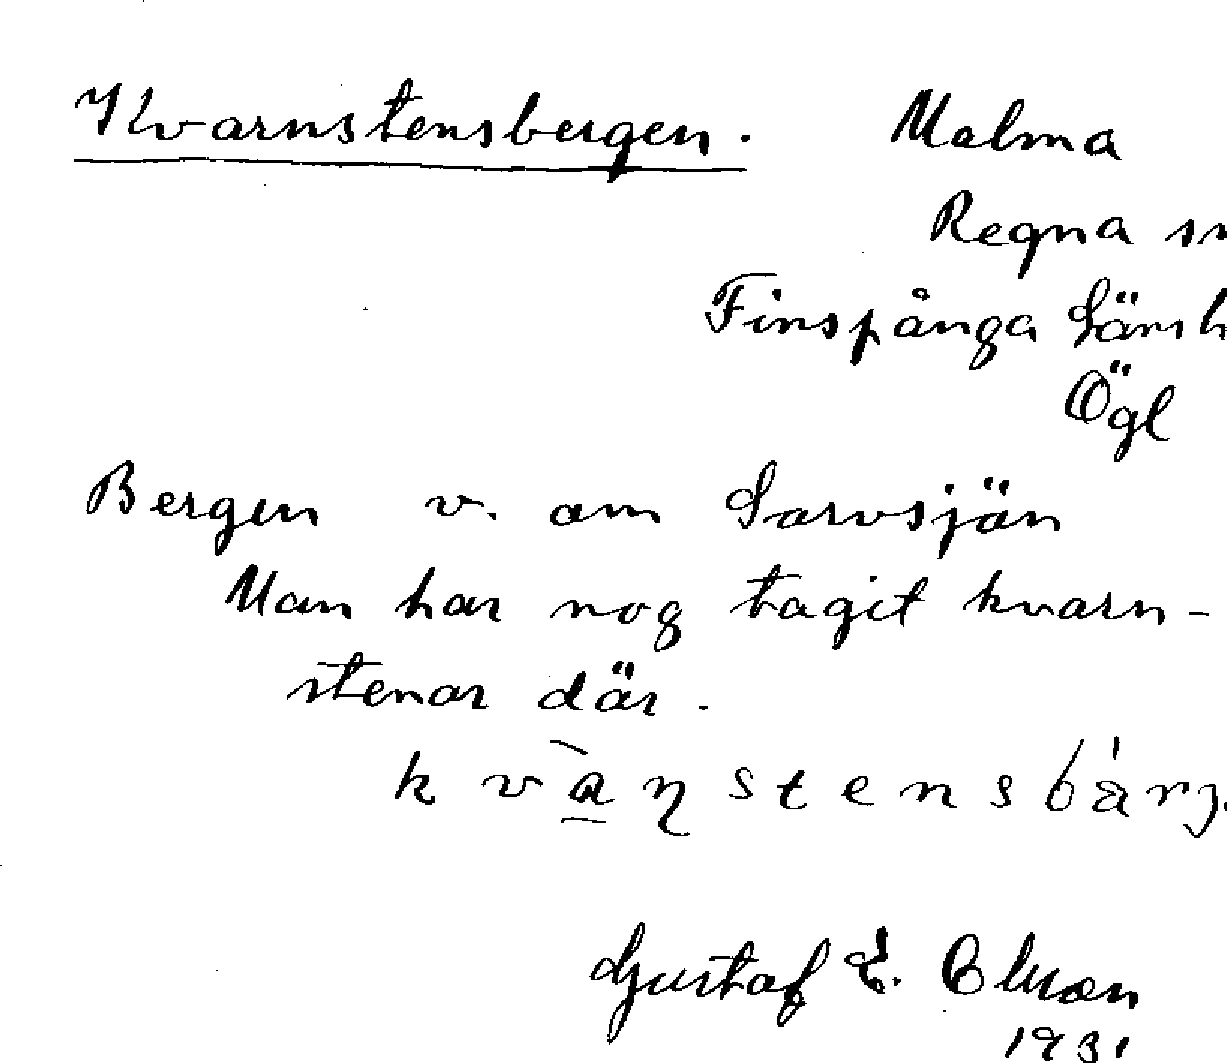 Kvarnstensbergen. Malma
Regna sn
Finspånga länsh
Ögl
Bergen v. om Sarvsjön
Man har nog tagit kvarn-
stenar där.
Gustaf E.
1931